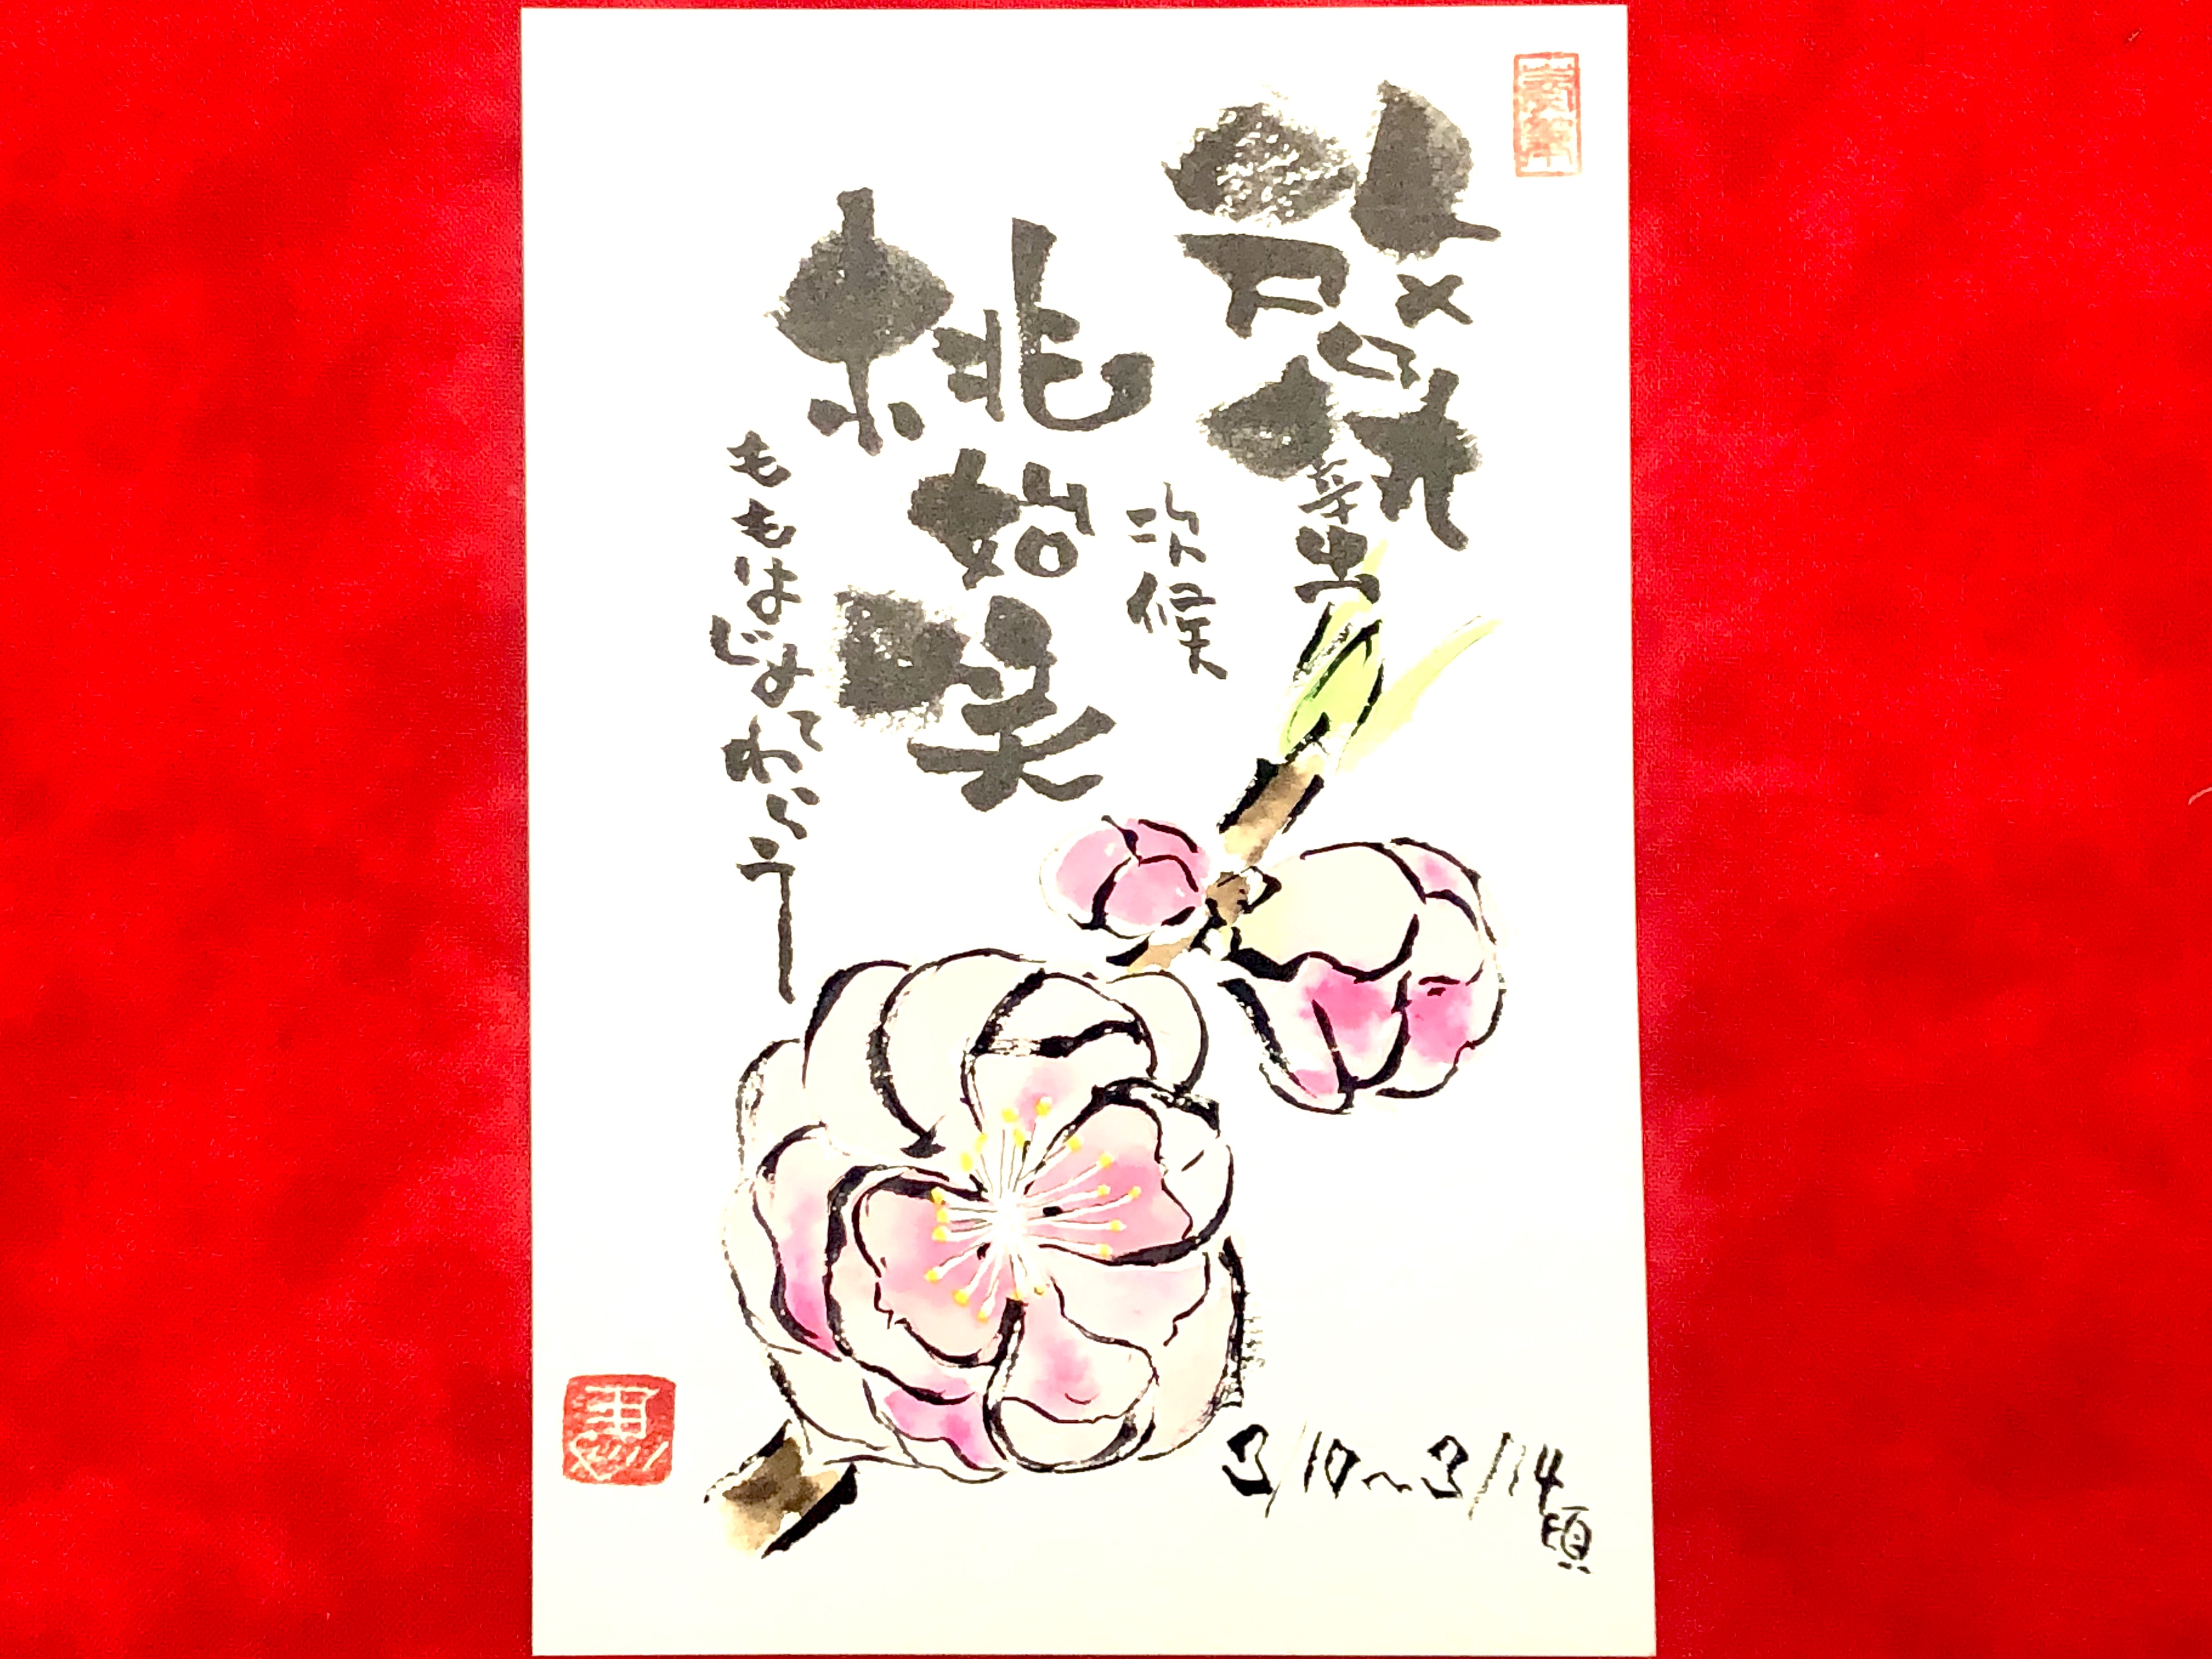 啓蟄
次候
桃始咲
ももはじめてわらう
3/10〜3/14頃
恵